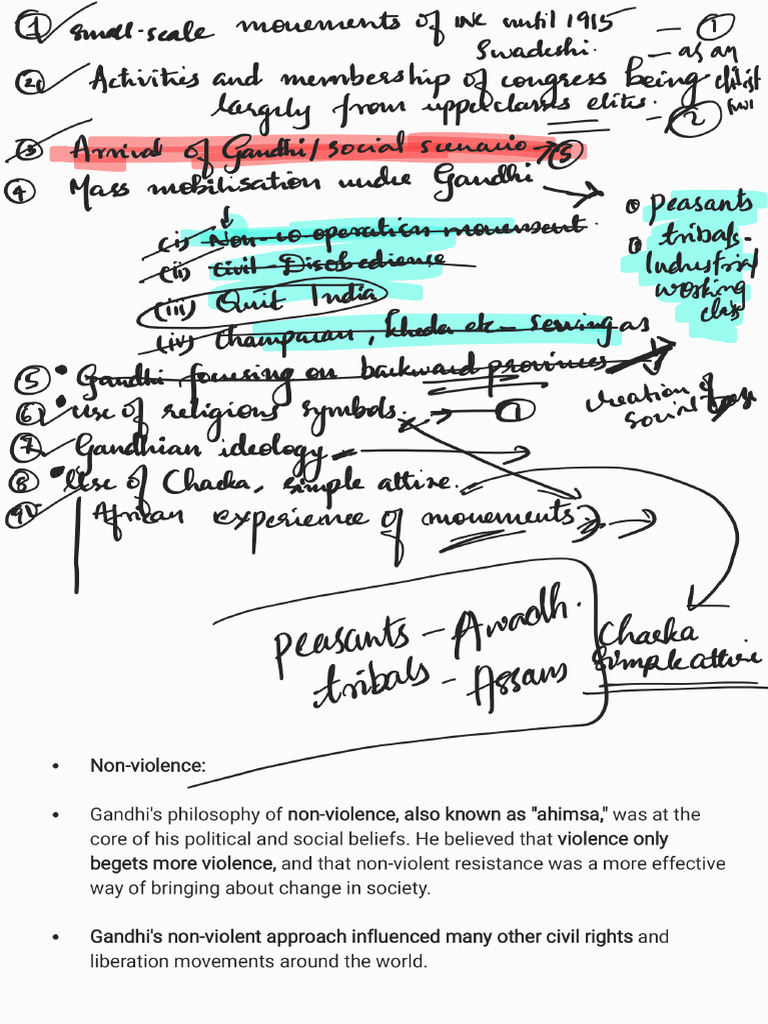 ① small-scale movements of INC until 1915 — ①
Swadeshi. — as an
② Activities and membership of congress being
largely from upperclasses elites. — ②
③ Arrival of Gandhi/social scenario → ③
④ Mass mobilisation under Gandhi →
• Peasants
• tribals-
Industrial
working
class
(i) Non-co operation movement.
(ii) Civil Disobedience
(iii) Quit India
(iv) Champaran, Kheda etc - serving as
⑤ • Gandhi focusing on backward provinces →
creation of
social
⑥ • use of religious symbols. → ①
⑦ Gandhian ideology →
⑧ • Use of Charka, simple attire.
⑨ African experience of movements →
Charka
Simple attire
Peasants - Awadh.
tribals - Assam
• Non-violence:
• Gandhi's philosophy of non-violence, also known as "ahimsa," was at the
core of his political and social beliefs. He believed that violence only
begets more violence, and that non-violent resistance was a more effective
way of bringing about change in society.
• Gandhi's non-violent approach influenced many other civil rights and
liberation movements around the world.